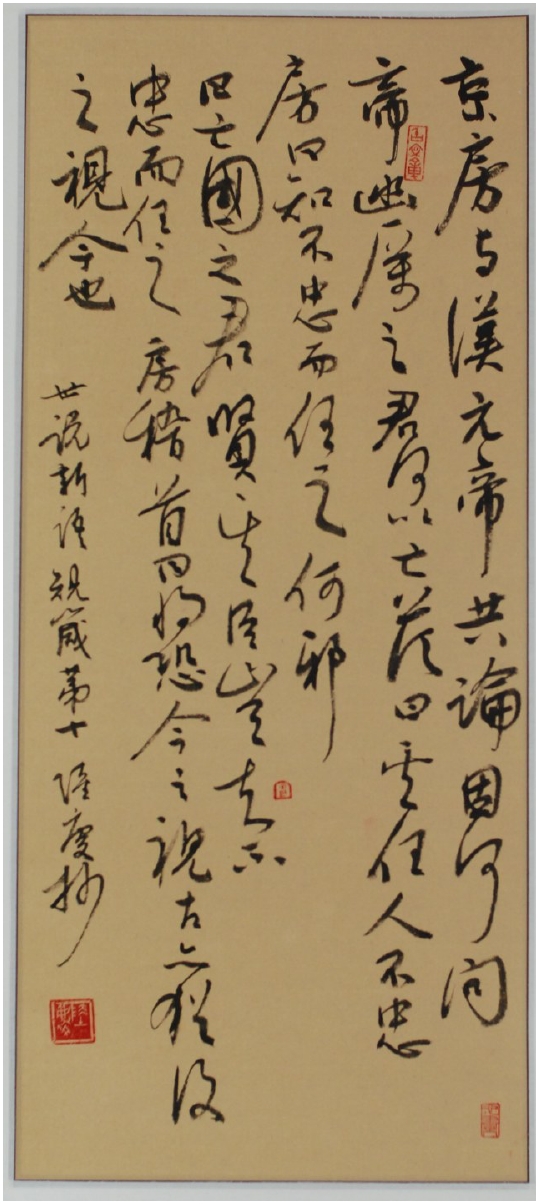 京房与漢元帝共論因何问
帝幽厲之君何以亡答曰其任人不忠
房曰知不忠而任之何邪
曰亡國之君賢其臣豈知不
忠而任之房稽首曰将恐今之視古亦猶後
之視今也
世说新語規箴第十 抄